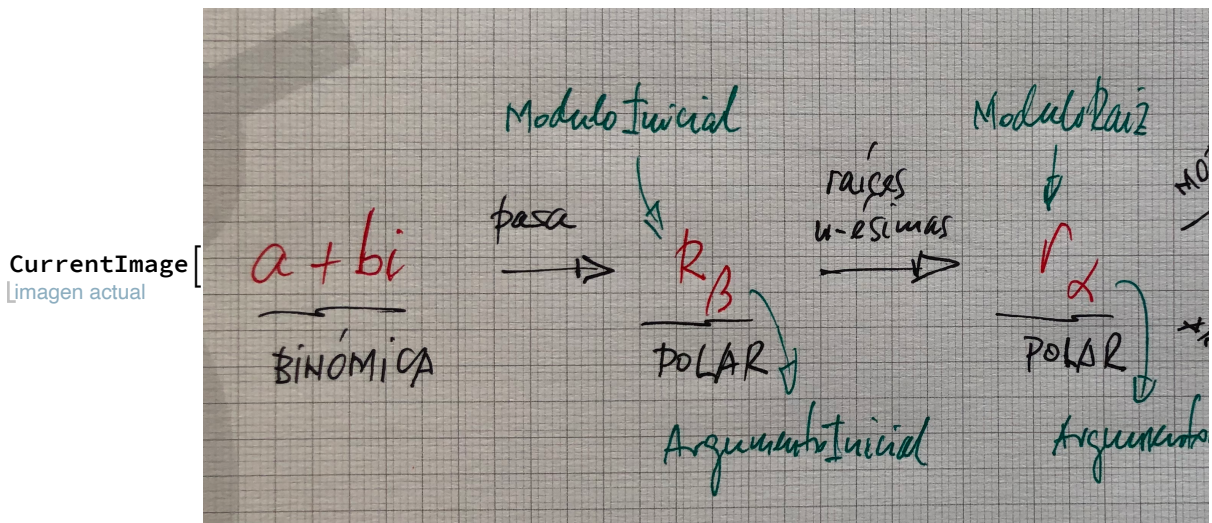 CurrentImage[
imagen actual
ModuloInicial
ModuloRaiz
pasa
raíces
n-ésimas
MÓ
a + bi
R β
r α
BINÓMICA
POLAR
POLAR
ArgumentoInicial
Argumento